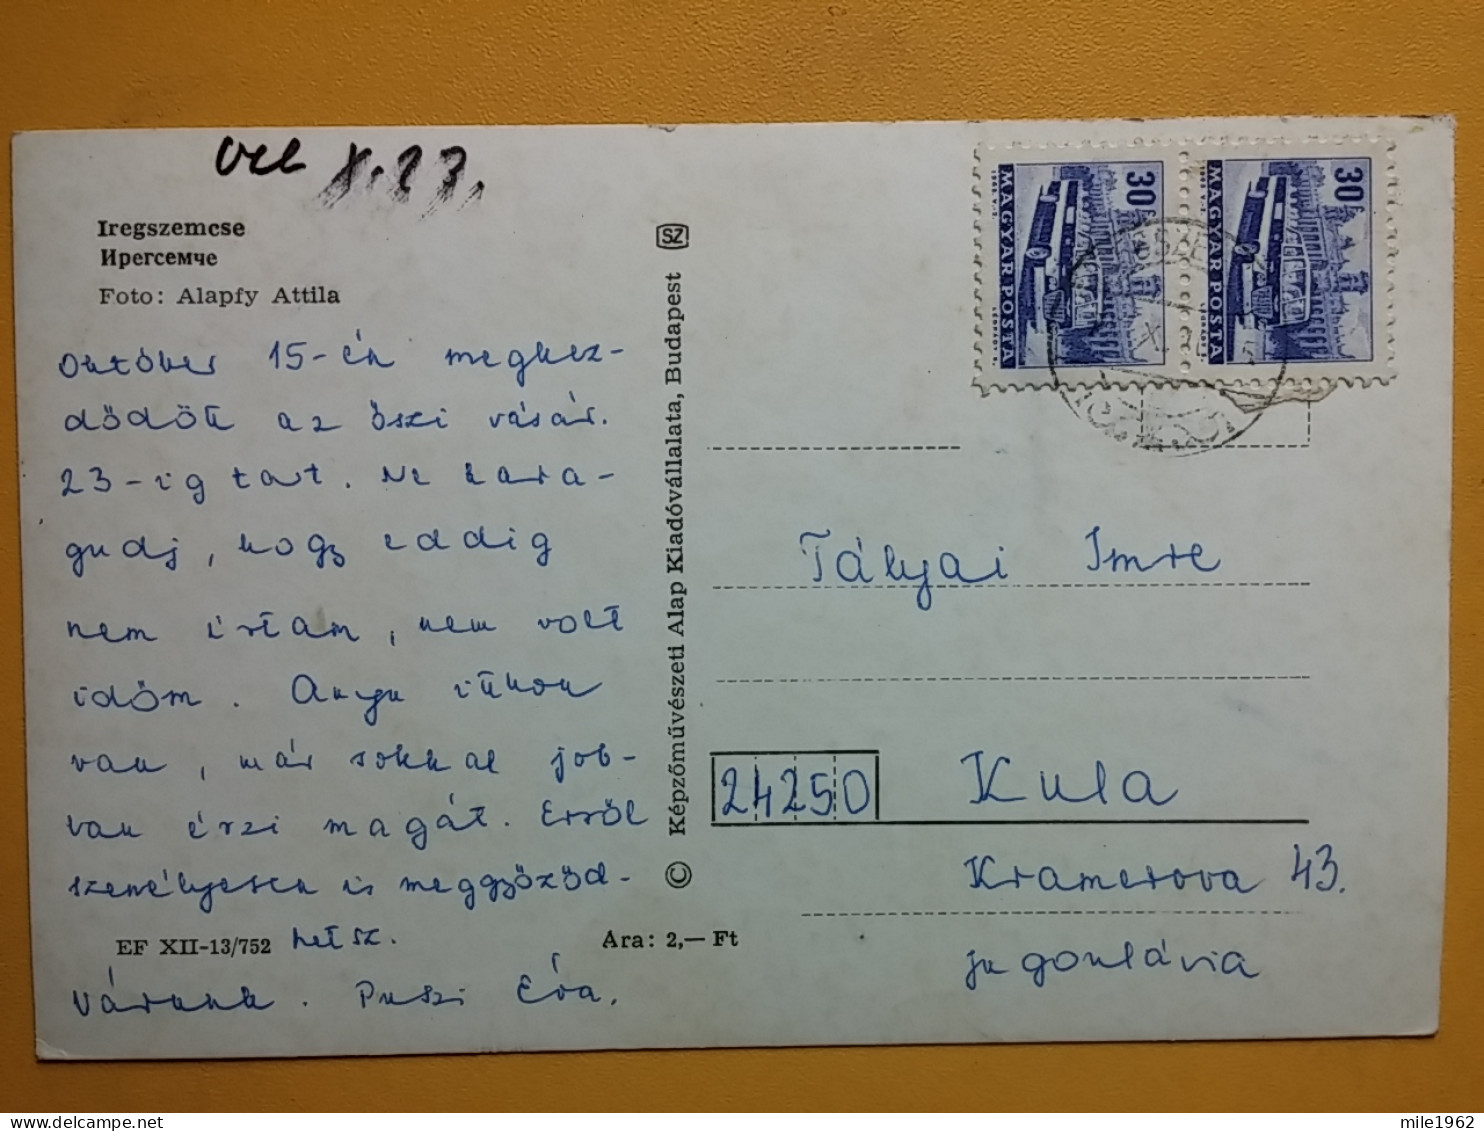 vel X.23.
Iregszemcse
Ирегсемче
Foto: Alapfy Attila
Október 15-én megkez-
dödött az őszi vásár.
23-ig tart. Ne hara-
gudj, hogy eddig
nem írtam, nem volt
időm. Anyu itthon
van, már sokkal job-
ban érzi magát. Erről
személyesen is meggyőződ-
hetsz.
Várunk. Puszi Éva.
EF XII-13/752
Ara: 2,— Ft
SZ
© Képzőművészeti Alap Kiadóvállalata, Budapest
30f
MAGYAR POSTA
30f
MAGYAR POSTA
Tályai Imre
24250 Kula
Kramerova 43.
Jugoszlávia
mile1962